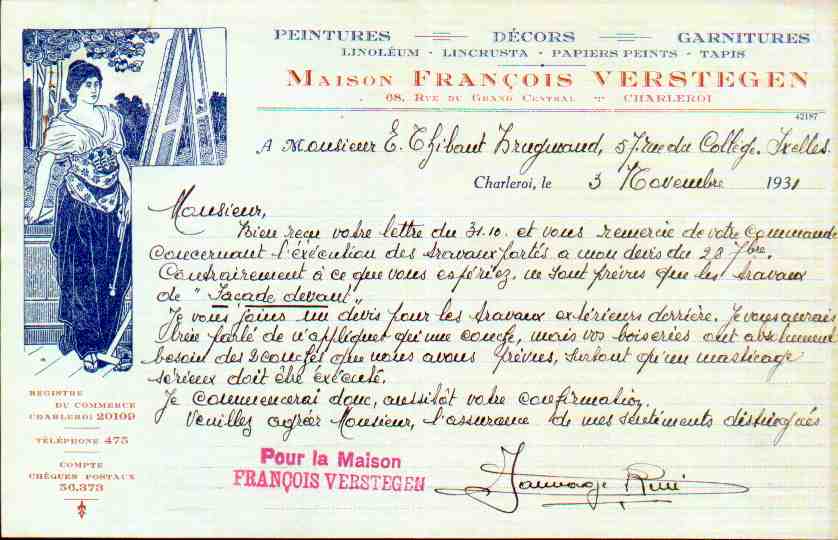 PEINTURES DÉCORS GARNITURES
LINOLÉUM - LINCRUSTA - PAPIERS PEINTS - TAPIS
MAISON FRANÇOIS VERSTEGEN
68, RUE DU GRAND CENTRAL CHARLEROI
42187
A Monsieur E. Thibaut 57 rue du Collège. Ixelles.
Charleroi, le 3 Novembre 1931
Monsieur,
Bien reçu votre lettre du 31.10. et vous remercie de votre commande
concernant l'exécution des travaux portés a mon devis du 28 7bre.
Contrairement à ce que vous espériez. ne sont prévus que les travaux
de "Façade devant"
Je vous joins un devis pour les travaux extérieurs derrière. Je vous aurais
bien parlé de n'appliquer qu'une couche, mais vos boiseries ont absolument
besoin des 2 couches que nous avons prévues, surtout qu'un masticage
sérieux doit être éxécuté.
Je commencerai donc, aussitôt votre confirmation.
Veuillez agréer Monsieur, l'assurance de mes sentiments distingués
REGISTRE
DU COMMERCE
CHARLEROI 20109
TÉLÉPHONE 475
COMPTE
CHÈQUES POSTAUX
56.373
Pour la Maison
FRANÇOIS VERSTEGEN